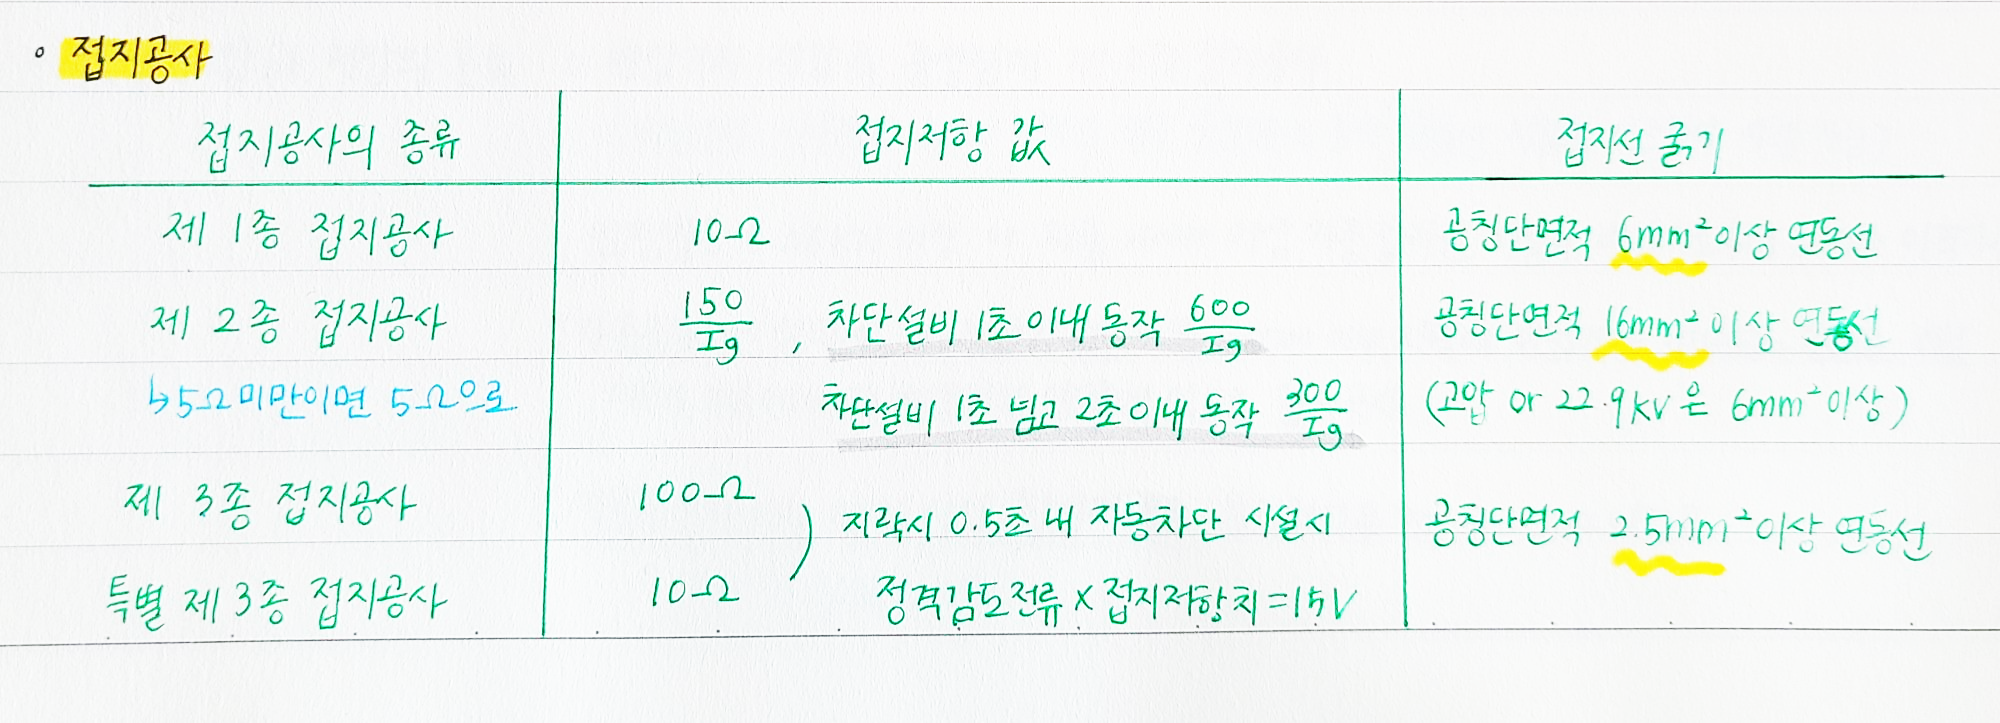 ◦ 접지공사
접지공사의 종류 접지저항 값 접지선 굵기
제 1종 접지공사 10Ω 공칭단면적 6mm² 이상 연동선
제 2종 접지공사 150/Ig , 차단설비 1초 이내 동작 600/Ig 공칭단면적 16mm² 이상 연동선
↳ 5Ω 미만이면 5Ω으로 차단설비 1초 넘고 2초 이내 동작 300/Ig (고압 or 22.9kV은 6mm² 이상)
제 3종 접지공사 100Ω
) 지락시 0.5초 내 자동차단 시설시 공칭단면적 2.5mm² 이상 연동선
특별 제 3종 접지공사 10Ω 정격감도전류 × 접지저항치 = 15V